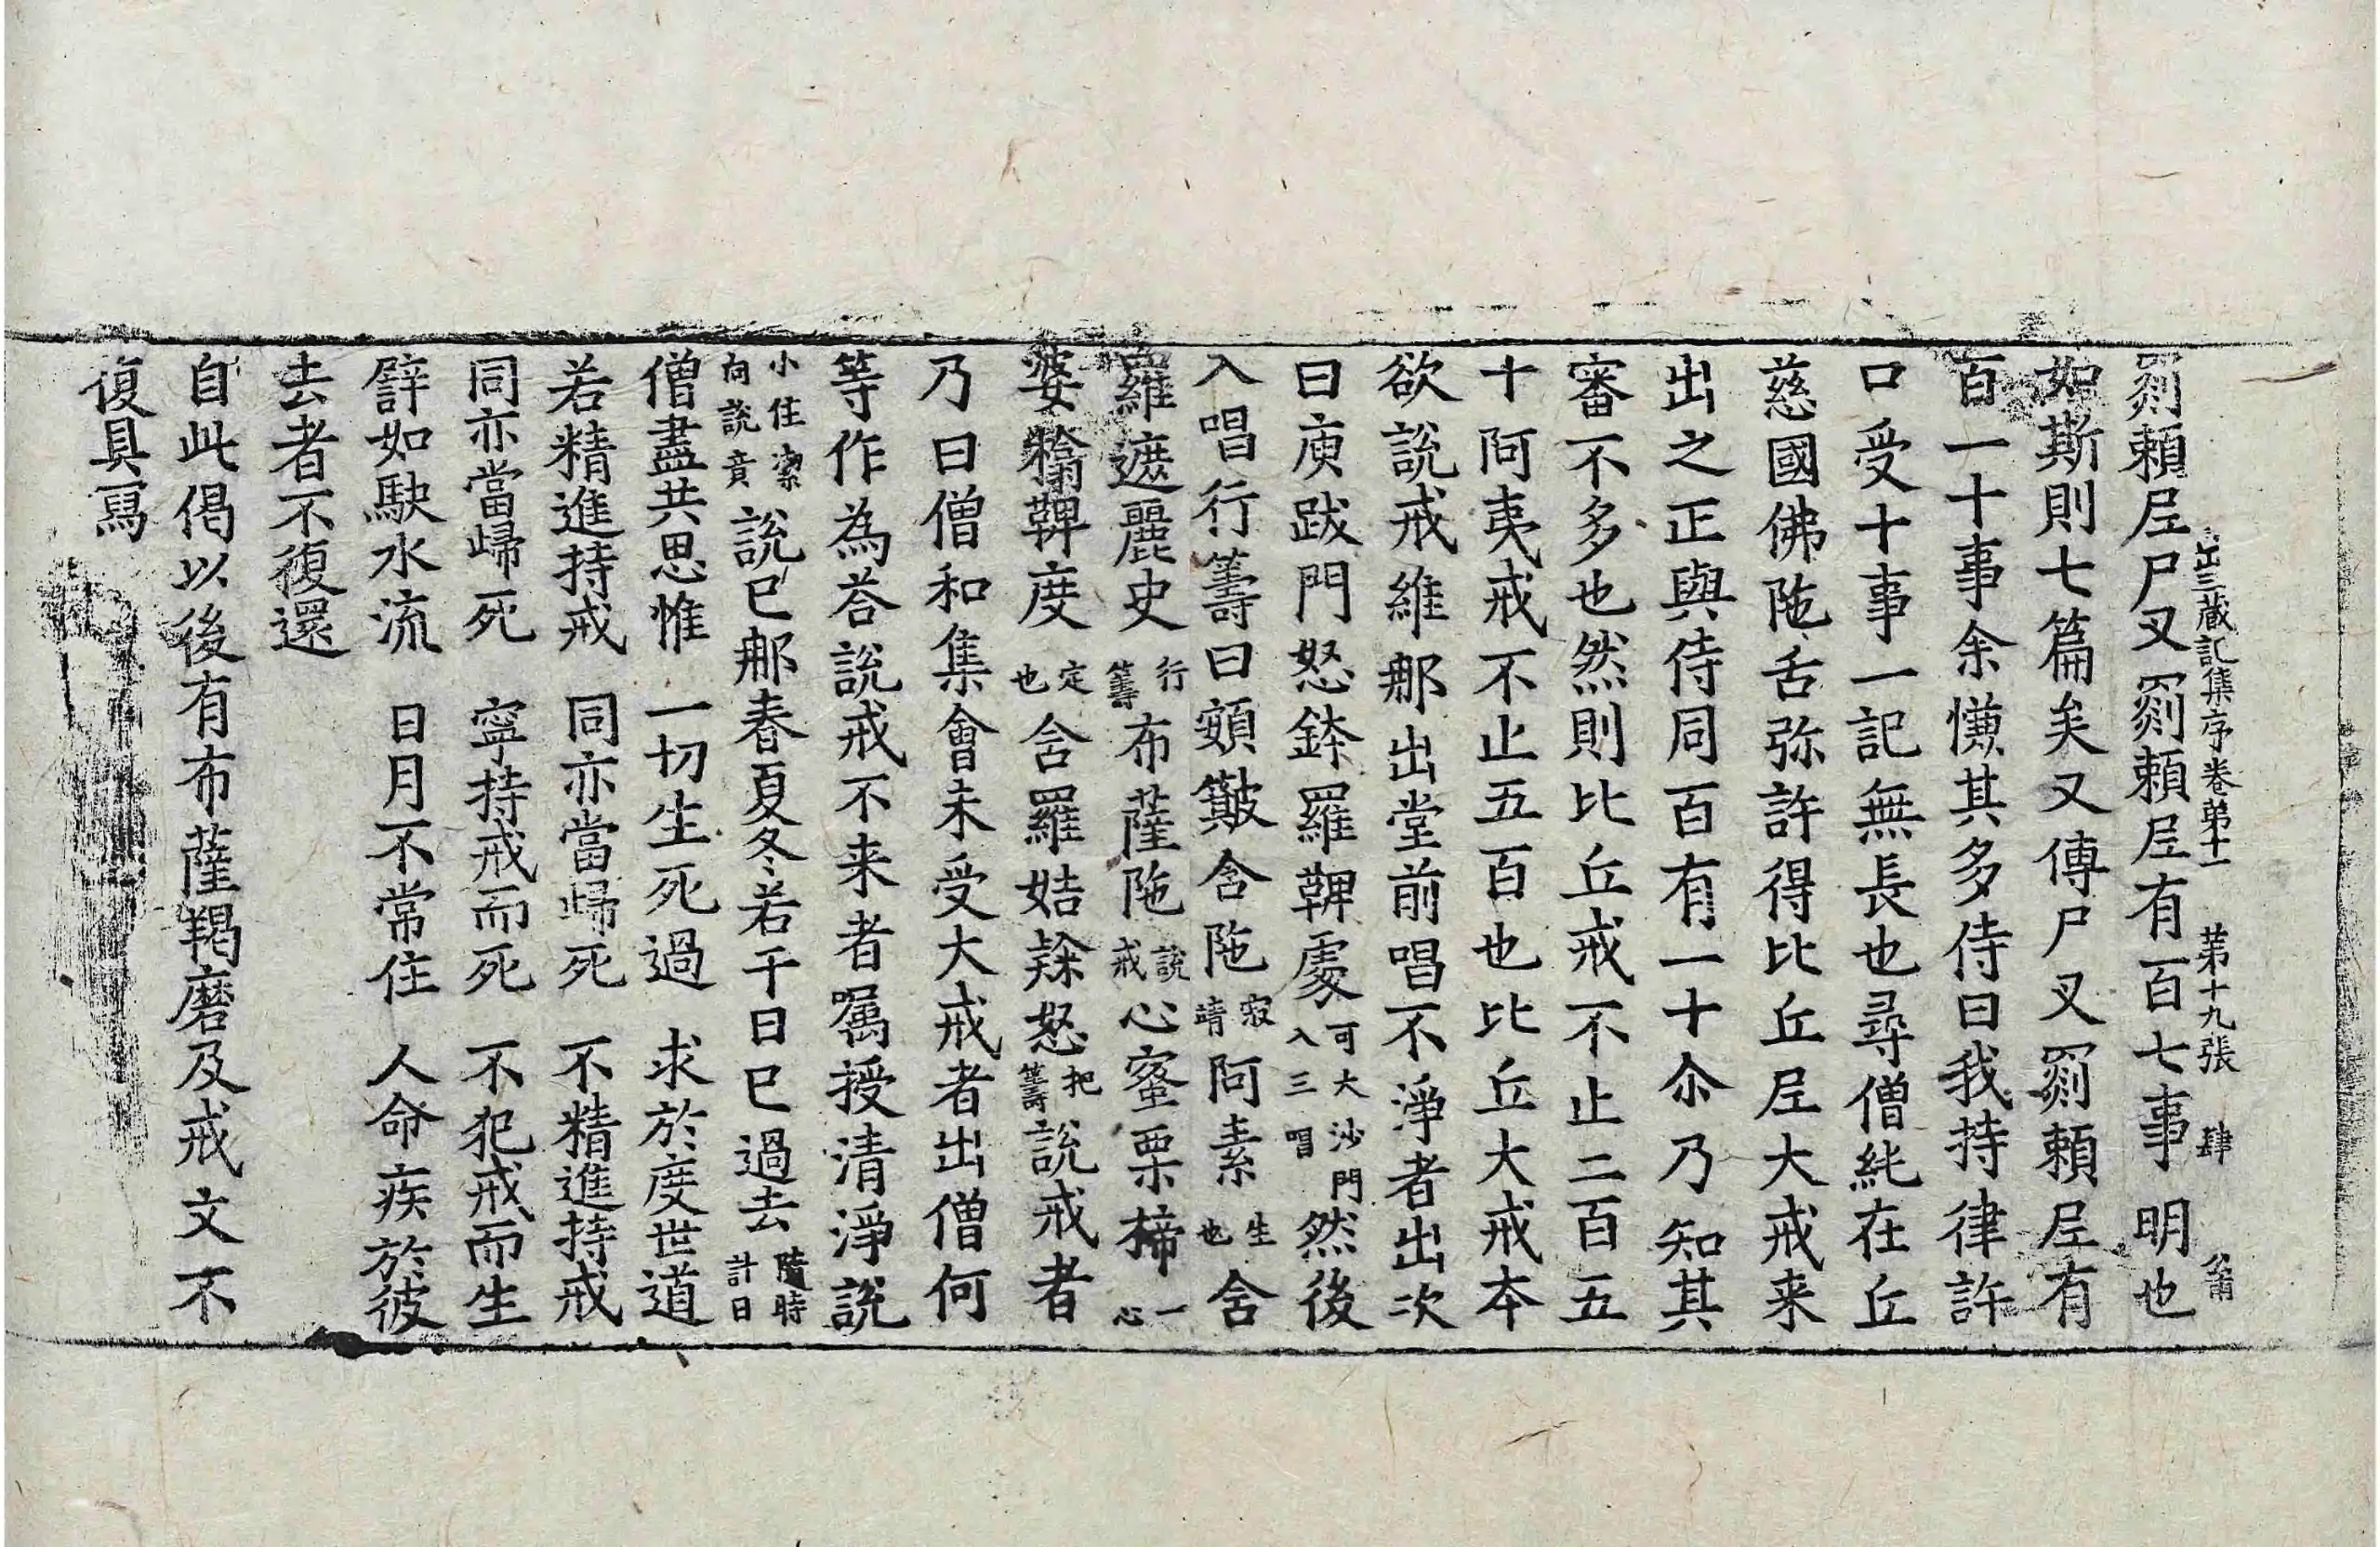 出三蔵記集序卷第十一　第十九張　肆
罽賴尼尸叉罽賴尼有百七事明也
如斯則七篇矣又傳尸叉罽賴尼有
百一十事余慊其多侍曰我持律許
口受十事一記無長也尋僧純在丘
慈國佛陁舌弥許得比丘尼大戒来
出之正與侍同百有一十尒乃知其
審不多也然則比丘戒不止二百五
十阿夷戒不止五百也比丘大戒本
欲說戒維那出堂前唱不淨者出次
曰庾跋門怒鉢羅鞞處可大沙門入三唱然後
入唱行籌曰頞簸含陁寂靖阿素生也舍
羅遮麗史行籌布薩陁說戒心蜜栗楴一心
婆𥻘鞞度定也舍羅姞隸怒把籌說戒者
乃曰僧和集會未受大戒者出僧何
等作為荅說戒不来者囑授清淨說
小住潔向說竟說巳郍春夏冬若干日巳過去隨時計日
僧盡共思惟　一切生死過　求於度世道
若精進持戒　同亦當歸死　不精進持戒
同亦當歸死　寧持戒而死　不犯戒而生
譬如駃水流　日月不常住　人命疾於彼
去者不復還
自此偈以後有布薩羯磨及戒文不
復具寫